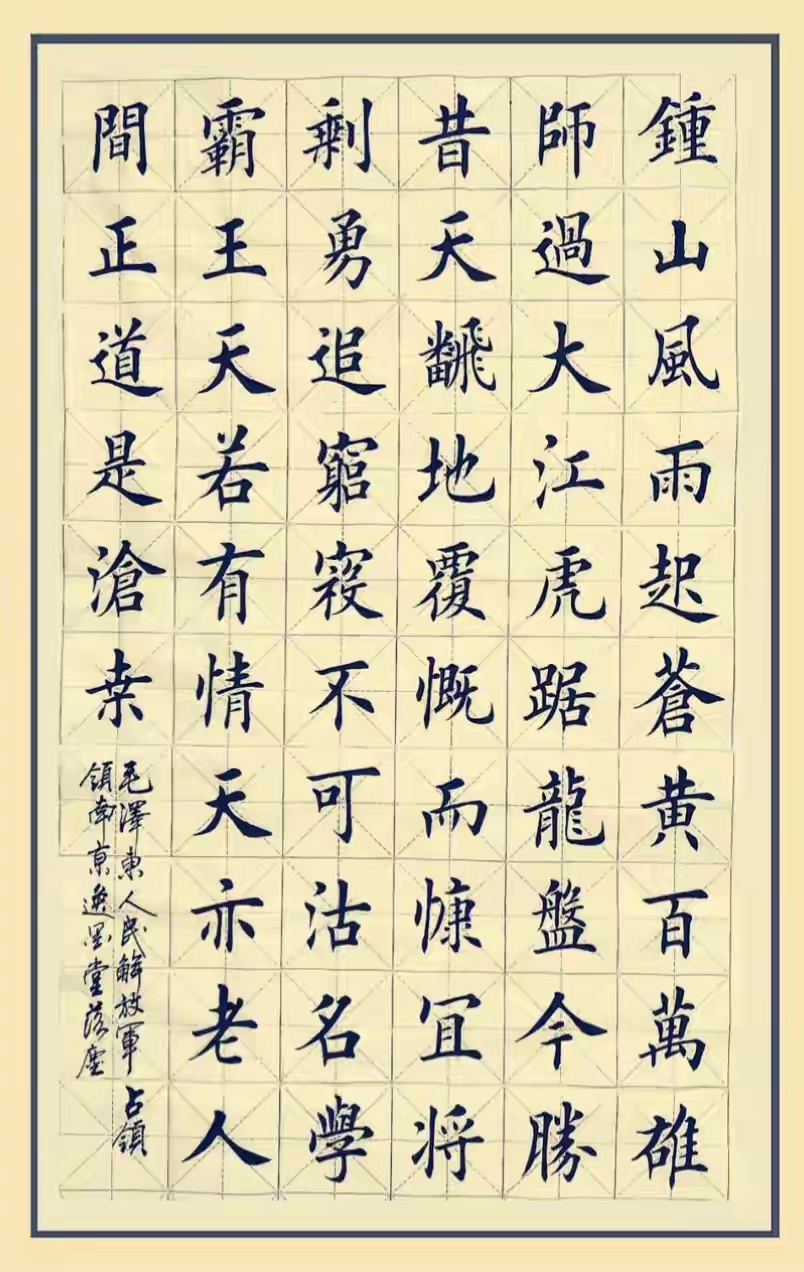 鍾山風雨起蒼黄百萬雄
師過大江虎踞龍盤今勝
昔天飜地覆慨而慷冝将
剩勇追窮寇不可沽名學
霸王天若有情天亦老人
間正道是滄桒
毛澤東人民解放軍占領
領南京逸墨堂落塵